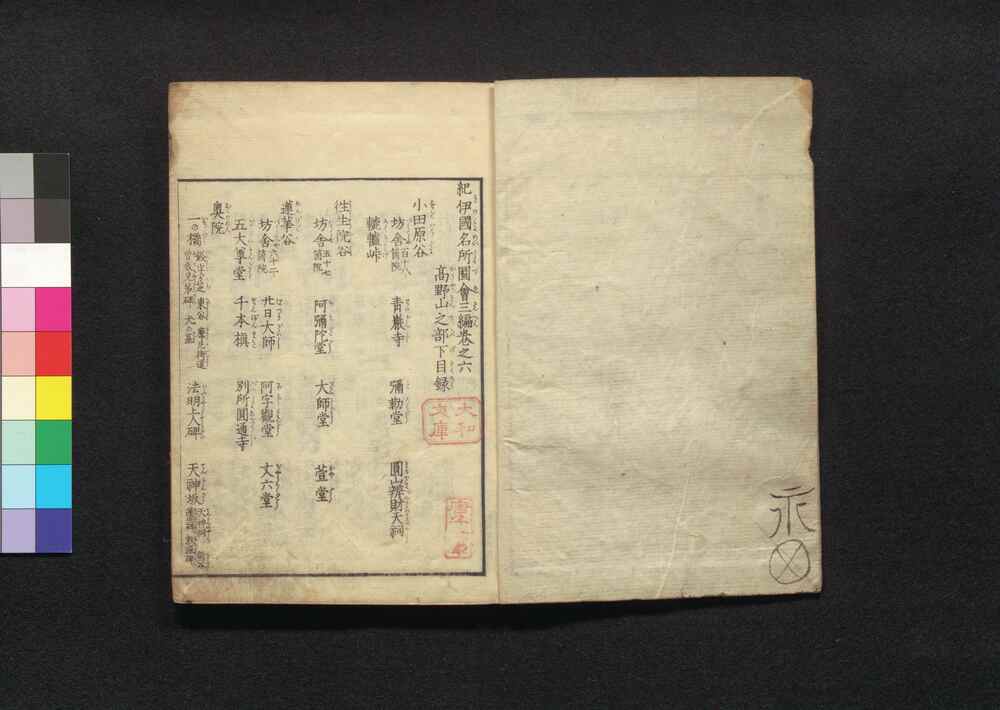 紀伊國名所圖會三編巻之六
高野山之部下目録
小田原谷
坊舎百十八箇院 青巌寺 彌勒堂 圓山辨財天祠
轆轤峠
往生院谷
坊舎五十七箇院 阿彌陀堂 大師堂 萱堂
蓮華谷
坊舎六十二箇院 廿日大師 阿字觀堂 丈六堂
五大尊堂 千本槇 別所圓通寺
奥院
一の橋 法明上人碑 天神坂
大和文庫